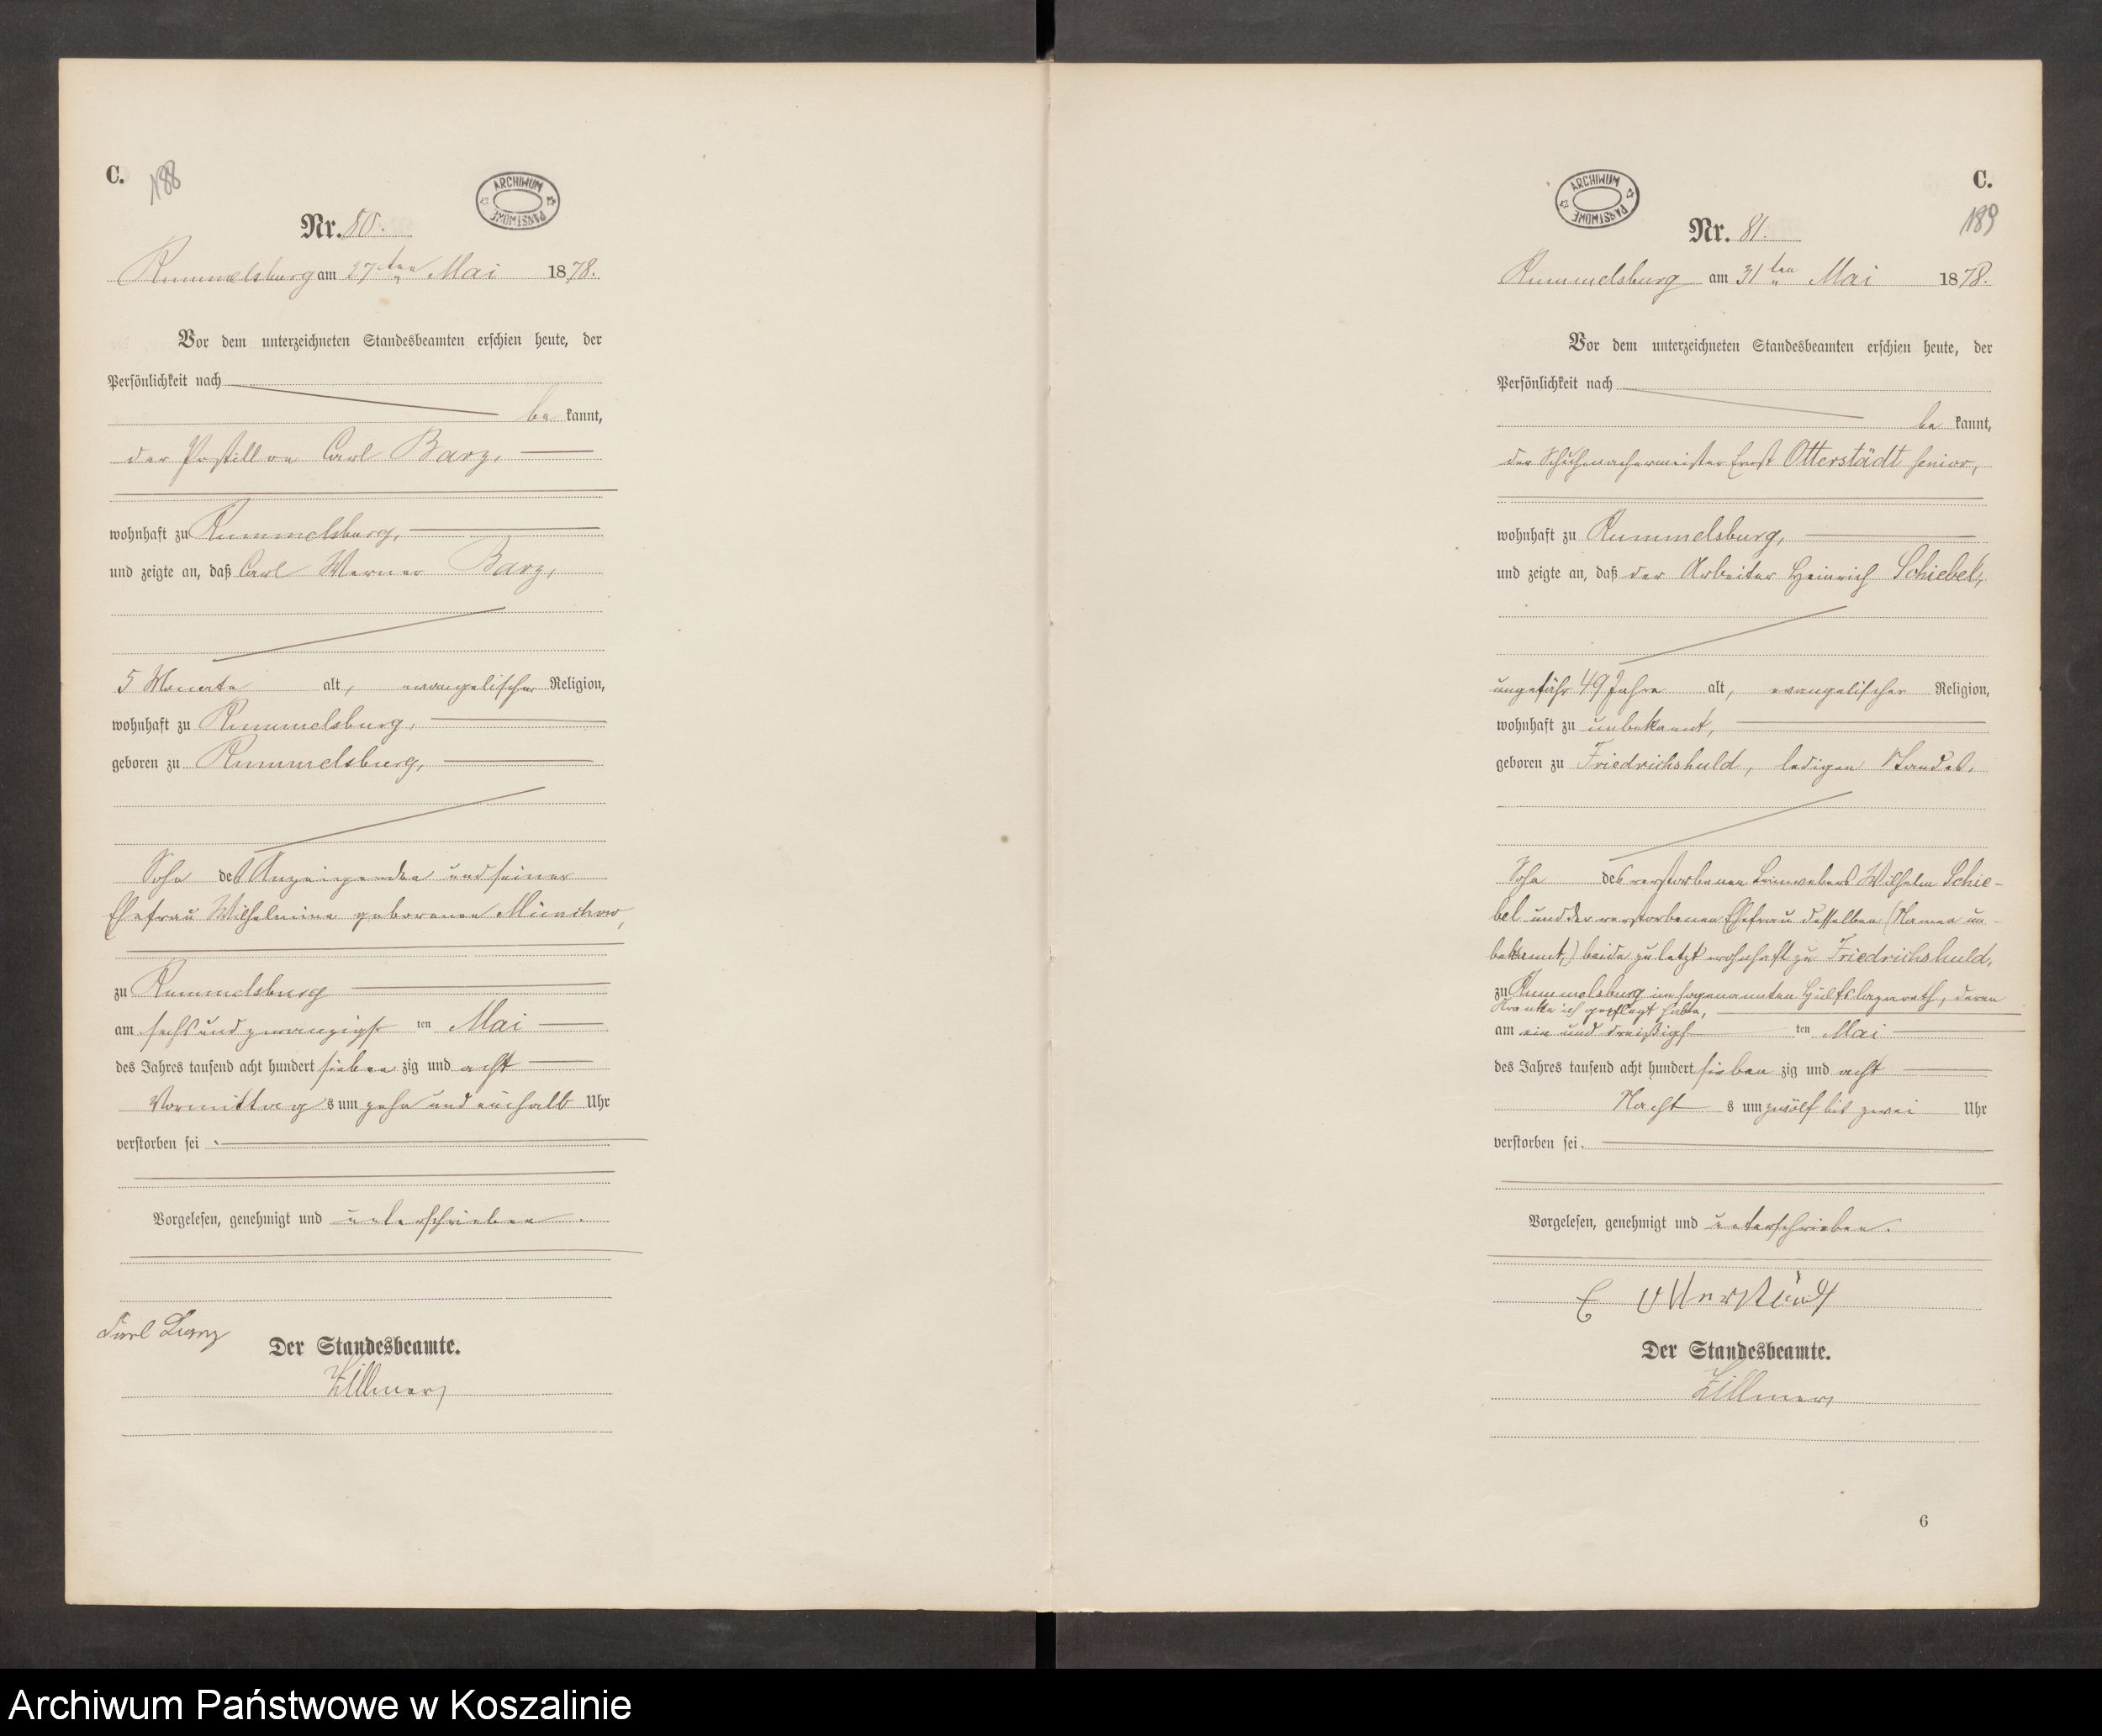 C.
188
ARCHIWUM PAŃSTWOWE
Nr. 80.
Rummelsburg am 27ten Mai 1878.
Vor dem unterzeichneten Standesbeamten erschien heute, der
Persönlichkeit nach
be kannt,
der Postillon Carl Barz,
wohnhaft zu Rummelsburg,
und zeigte an, daß Carl Werner Barz,
5 Monate alt, evangelischer Religion,
wohnhaft zu Rummelsburg,
geboren zu Rummelsburg,
Sohn des Anzeigenden und seiner
Ehefrau Wilhelmine geborenen Münchow,
zu Rummelsburg
am sechs und zwanzigst ten Mai
des Jahres tausend acht hundert sieben zig und acht
Vormittag s um zehn und einhalb Uhr
verstorben sei.
Vorgelesen, genehmigt und unterschrieben.
Carl Barz
Der Standesbeamte.
Zillmer
C.
189
ARCHIWUM PAŃSTWOWE
Nr. 81.
Rummelsburg am 31ten Mai 1878.
Vor dem unterzeichneten Standesbeamten erschien heute, der
Persönlichkeit nach
be kannt,
der Schuhmachermeister Ernst Otterstädt senior,
wohnhaft zu Rummelsburg,
und zeigte an, daß der Arbeiter Heinrich Schiebel,
ungefähr 49 Jahre alt, evangelischer Religion,
wohnhaft zu unbekannt,
geboren zu Friedrichshuld, ledigen Standes,
Sohn des verstorbenen Leinwebers Wilhelm Schie-
bel und der verstorbenen Ehefrau desselben (Namen un-
bekannt,) beide zuletzt wohnhaft zu Friedrichshuld,
zu Rummelsburg im sogenannten Hülfslazareth, deren
Kranke ich gepflegt habe,
am ein und dreißigst ten Mai
des Jahres tausend acht hundert sieben zig und acht
Nacht s um zwölf bis zwei Uhr
verstorben sei.
Vorgelesen, genehmigt und unterschrieben.
E Otterstädt
Der Standesbeamte.
Zillmer
6
Archiwum Państwowe w Koszalinie